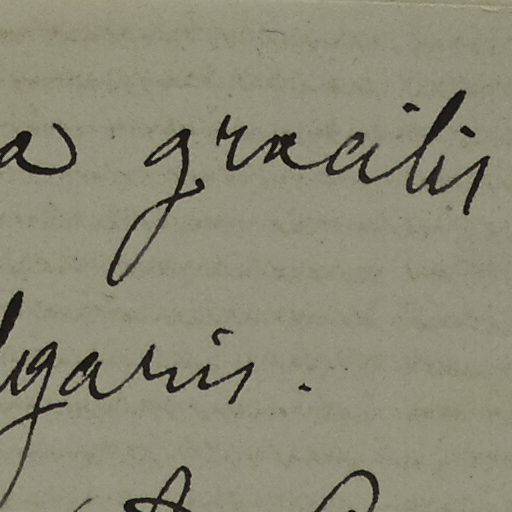 a gracilis
lgaris.